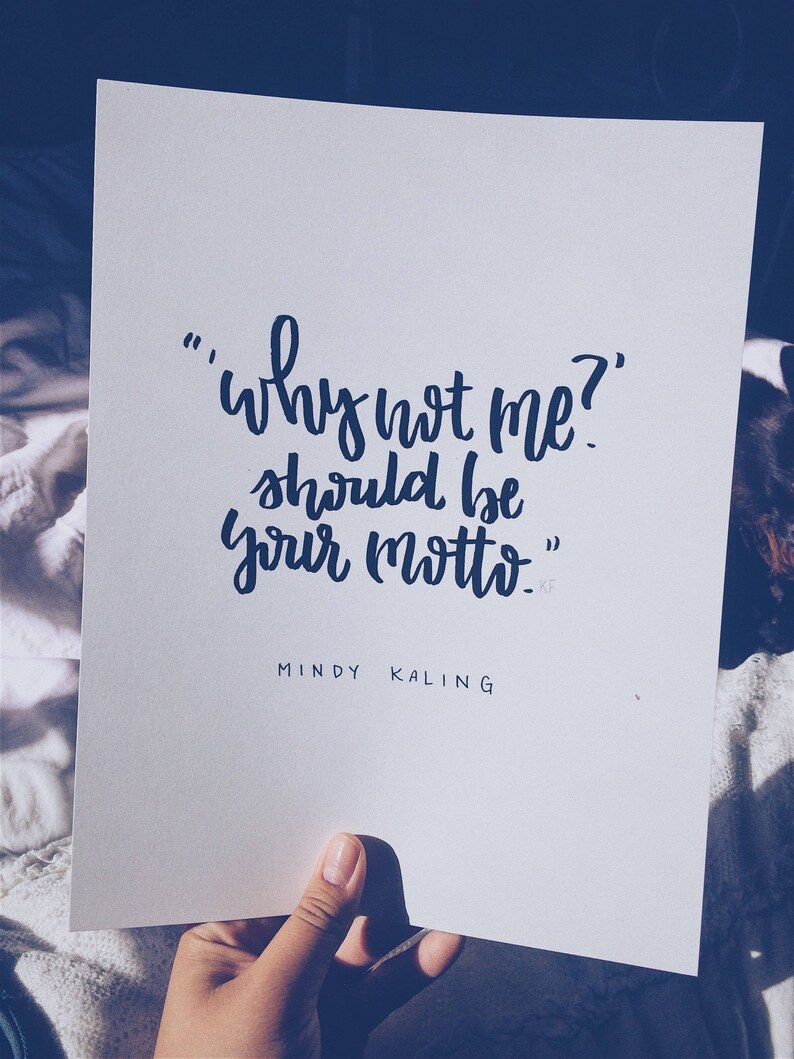 "'why not me?'
should be
your motto."
KF
MINDY KALING